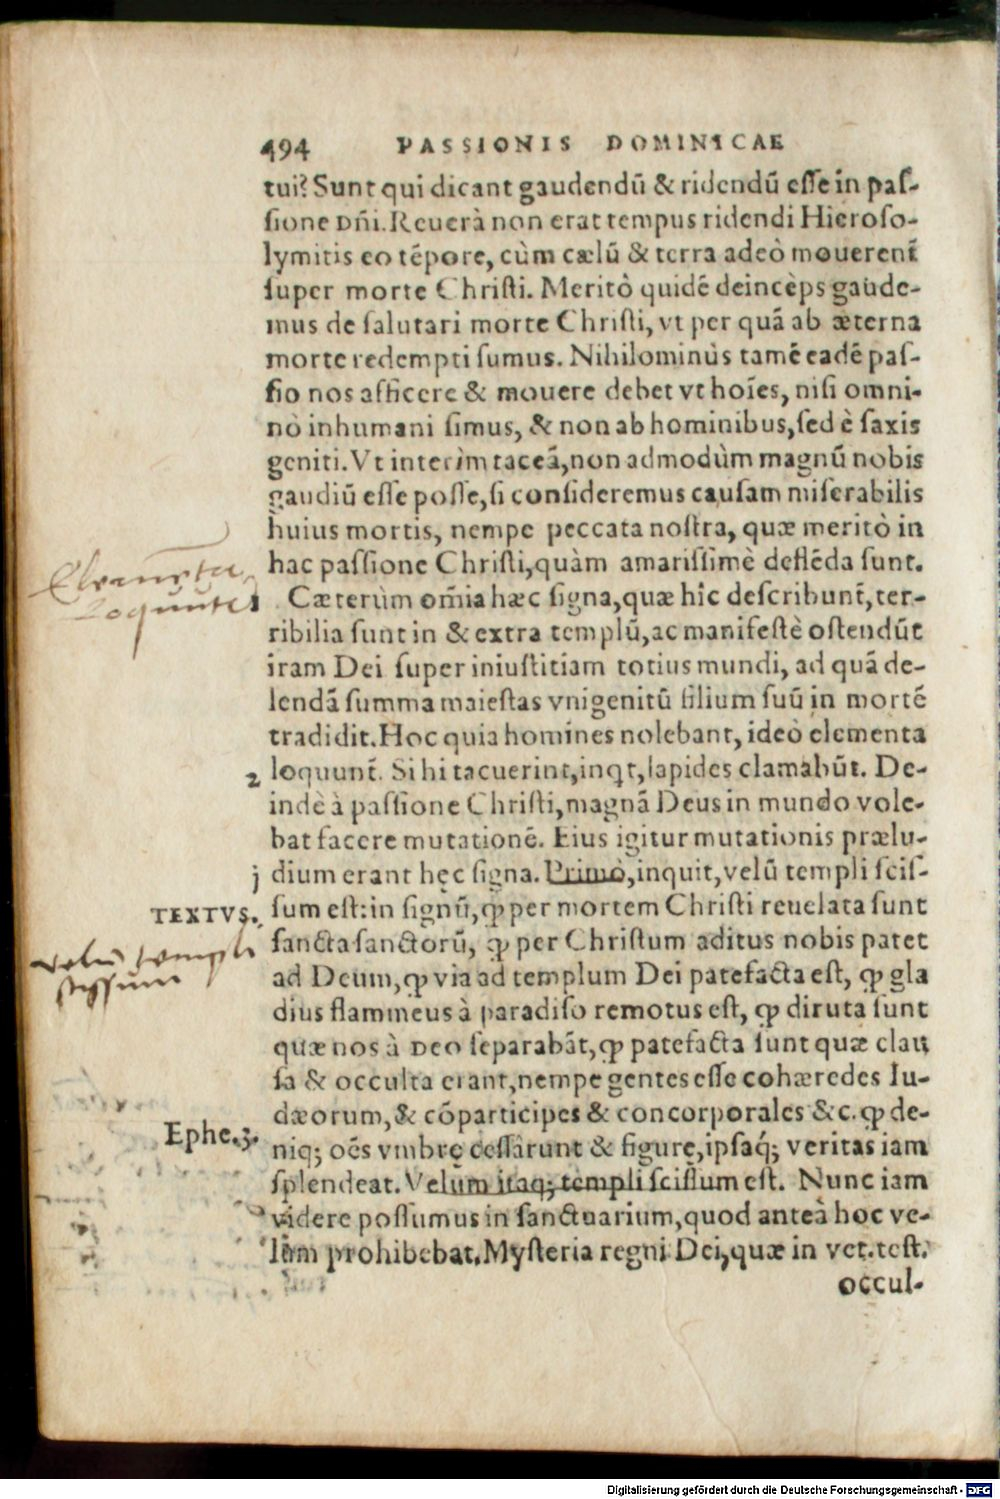 494 PASSIONIS DOMINICAE
tui? Sunt qui dicant gaudendũ & ridendũ eſſe in paſ-
ſione DÑi. Reuerà non erat tempus ridendi Hieroſo-
lymitis eo tẽpore, cùm cælũ & terra adeò mouerent̃
ſuper morte Chriſti. Meritò quidẽ deincèps gaude-
mus de ſalutari morte Chriſti, vt per quã ab æterna
morte redempti ſumus. Nihilominùs tamẽ eadẽ paſ-
ſio nos afficere & mouere debet vt hoĩes, niſi omni-
nò inhumani ſimus, & non ab hominibus, ſed è ſaxis
geniti. Vt interìm taceã, non admodùm magnũ nobis
gaudiũ eſſe poſſe, ſi conſideremus cauſam miſerabilis
huius mortis, nempe peccata noſtra, quæ meritò in
hac paſſione Chriſti, quàm amariſſimè deflẽda ſunt.
Elementa
loquuntur
1 Cæterùm om̃ia hæc ſigna, quæ hîc deſcribunt̃, ter-
ribilia ſunt in & extra templũ, ac manifeſtè oſtendũt
iram Dei ſuper iniuſtitiam totius mundi, ad quã de-
lendã ſumma maieſtas vnigenitũ filium ſuũ in mortẽ
tradidit. Hoc quia homines nolebant, ideò elementa
2 loquunt̃. Si hi tacuerint, inqt, lapides clamabũt. De-
indè à paſſione Chriſti, magnã Deus in mundo vole-
bat facere mutationẽ. Eius igitur mutationis prælu-
j dium erant hęc ſigna. Primò, inquit, velũ templi ſciſ-
TEXTVS.
ſum eſt: in ſignũ, ꝙ per mortem Chriſti reuelata ſunt
velũ templi
scissum
ſancta ſanctorũ, ꝙ per Chriſtum aditus nobis patet
ad Deum, ꝙ via ad templum Dei patefacta eſt, ꝙ gla
dius flammeus à paradiſo remotus eſt, ꝙ diruta ſunt
quæ nos à DEO ſeparabãt, ꝙ patefacta ſunt quæ clau
ſa & occulta erant, nempe gentes eſſe cohæredes Iu-
dæorum, & cõparticipes & concorporales &c. ꝙ de-
Ephe.3.
niq; oẽs vmbrę ceſſarunt & figurę, ipſaq́; veritas iam
ſplendeat. Velum itaq; templi ſciſſum eſt. Nunc iam
videre poſſumus in ſanctuarium, quod anteà hoc ve-
lum prohibebat. Myſteria regni Dei, quæ in vet. teſt.
occul-
Digitalisierung gefördert durch die Deutsche Forschungsgemeinschaft - DFG